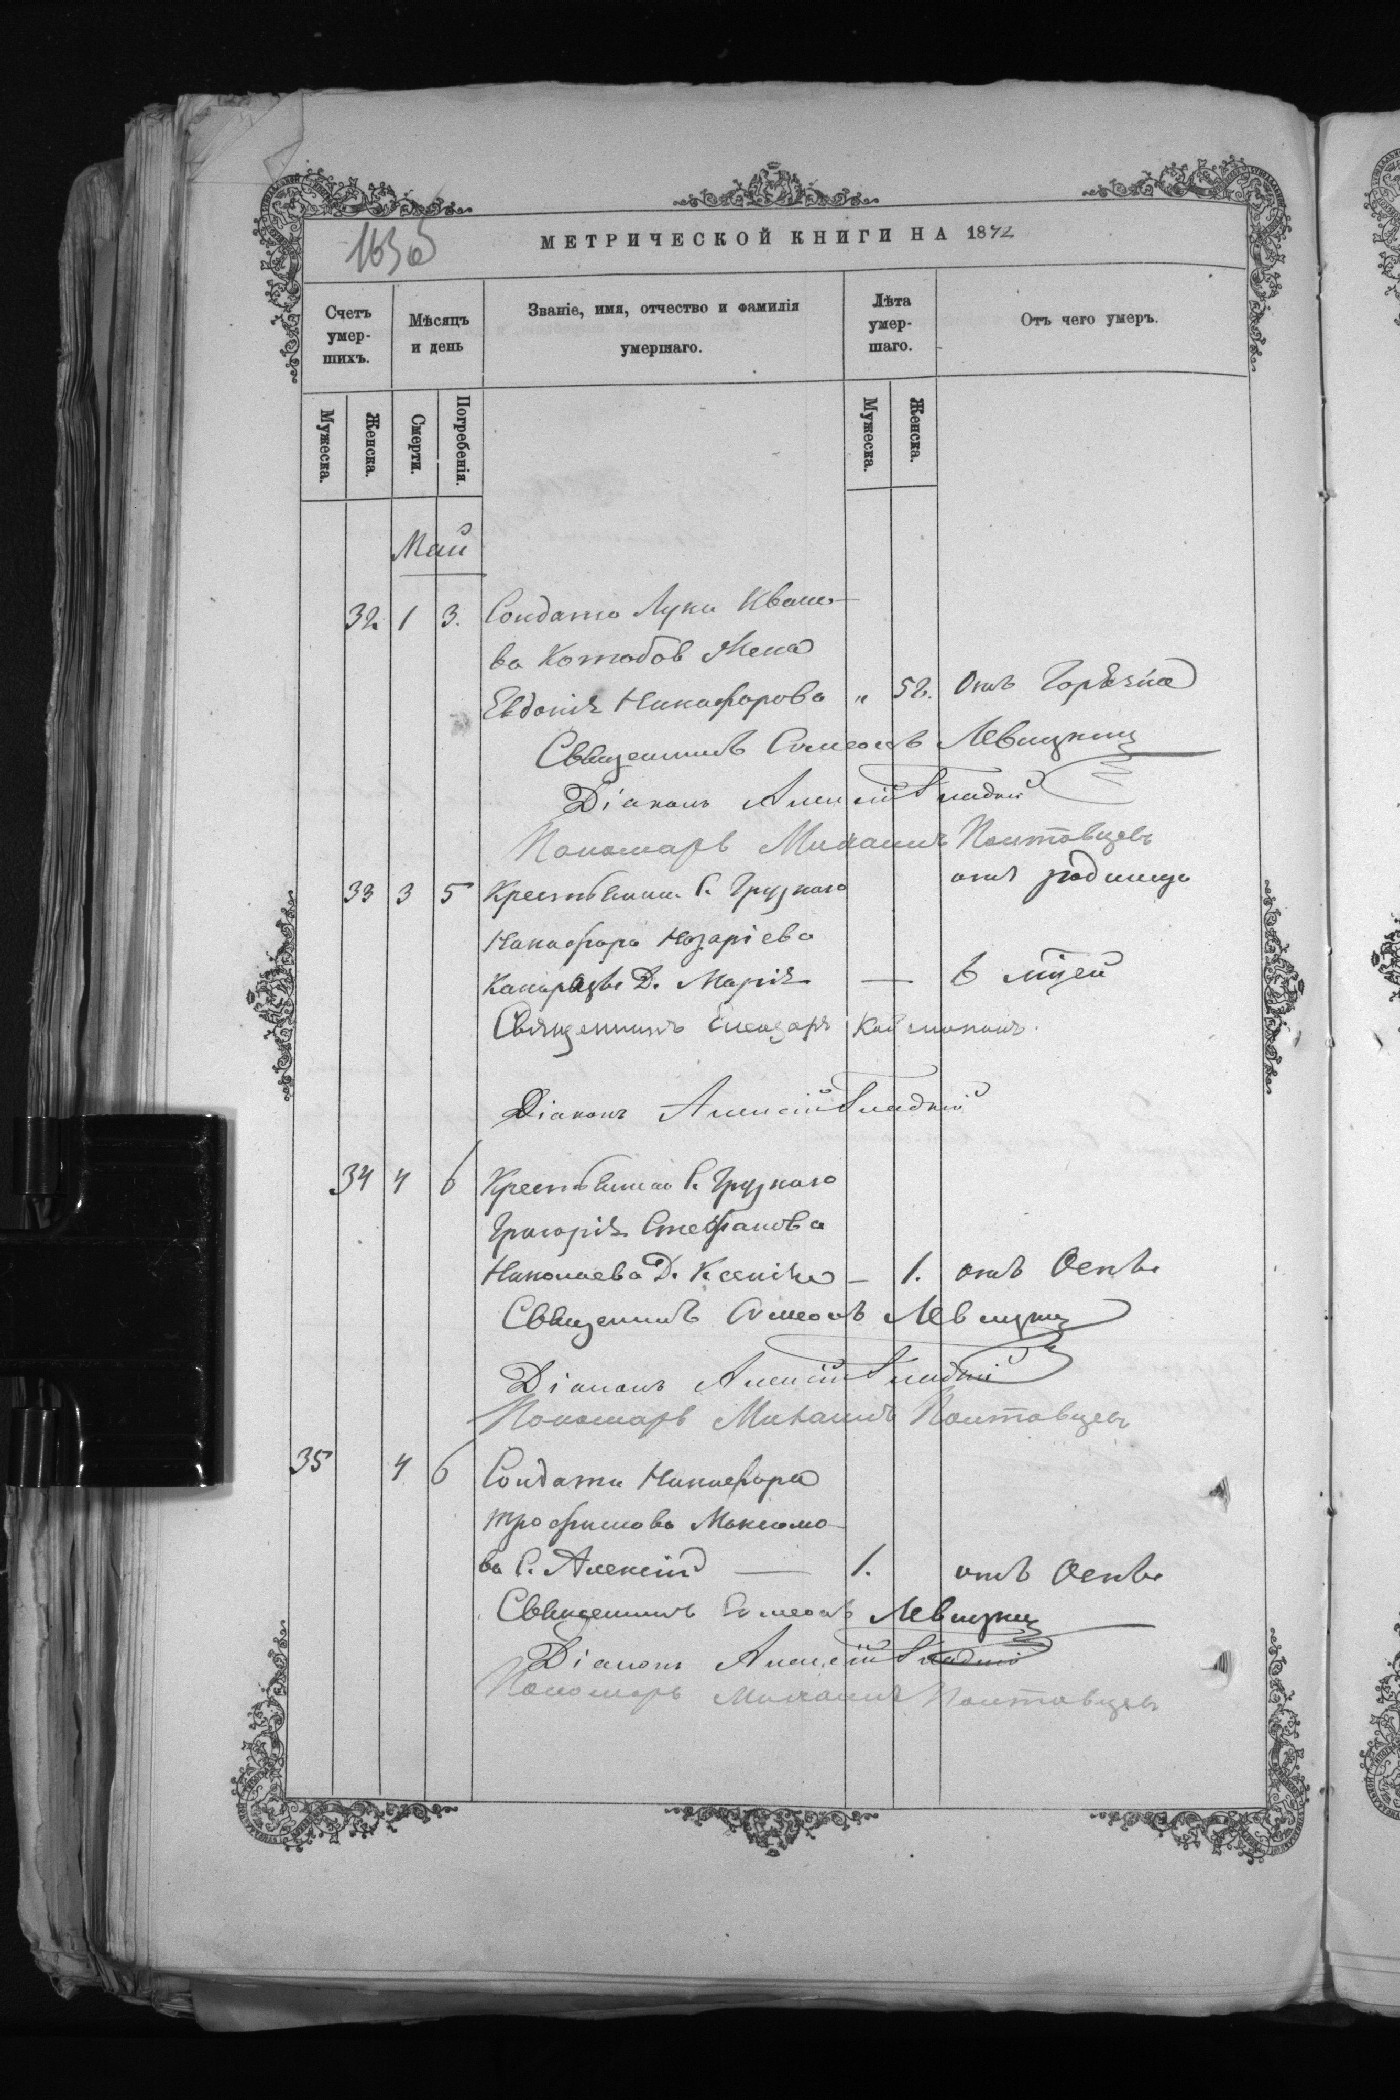 163б
МЕТРИЧЕСКОЙ КНИГИ НА 1872
Счетъ умер-шихъ.
Мѣсяцъ и день
Званіе, имя, отчество и фамилія умершаго.
Лѣта умер-шаго.
Отъ чего умеръ.
Мужеска.
Женска.
Смерти.
Погребенія.
Мужеска.
Женска.
Май
32 1 3. Солдата Луки Ивано-
ва Жена
Евдокія Никифорова „ 52. Отъ Горячки
Священникъ Симеонъ Левицкий
Діаконъ Алексій Гладкій
Пономарь Михаилъ Полтавцевъ
33 3 5 Крестьянина С. Грузкаго отъ родимца
Никифора Назаріева
Д. Марія — 6 мцей
Священникъ
Діаконъ Алексій Гладкій
34 4 6 Крестьянина С. Грузкаго
Григорія Стефанова
Николаева Д. Ксенія — 1. отъ Оспы
Священникъ Симеонъ Левицкий
Діаконъ Алексій Гладкій
Пономарь Михаилъ Полтавцевъ
35 4 6 Солдата Никифора
Трофимова Максимо-
ва С. Алексій — 1. отъ Оспы
Священникъ Симеонъ Левицкий
Діаконъ Алексій Гладкій
Пономарь Михаилъ Полтавцевъ